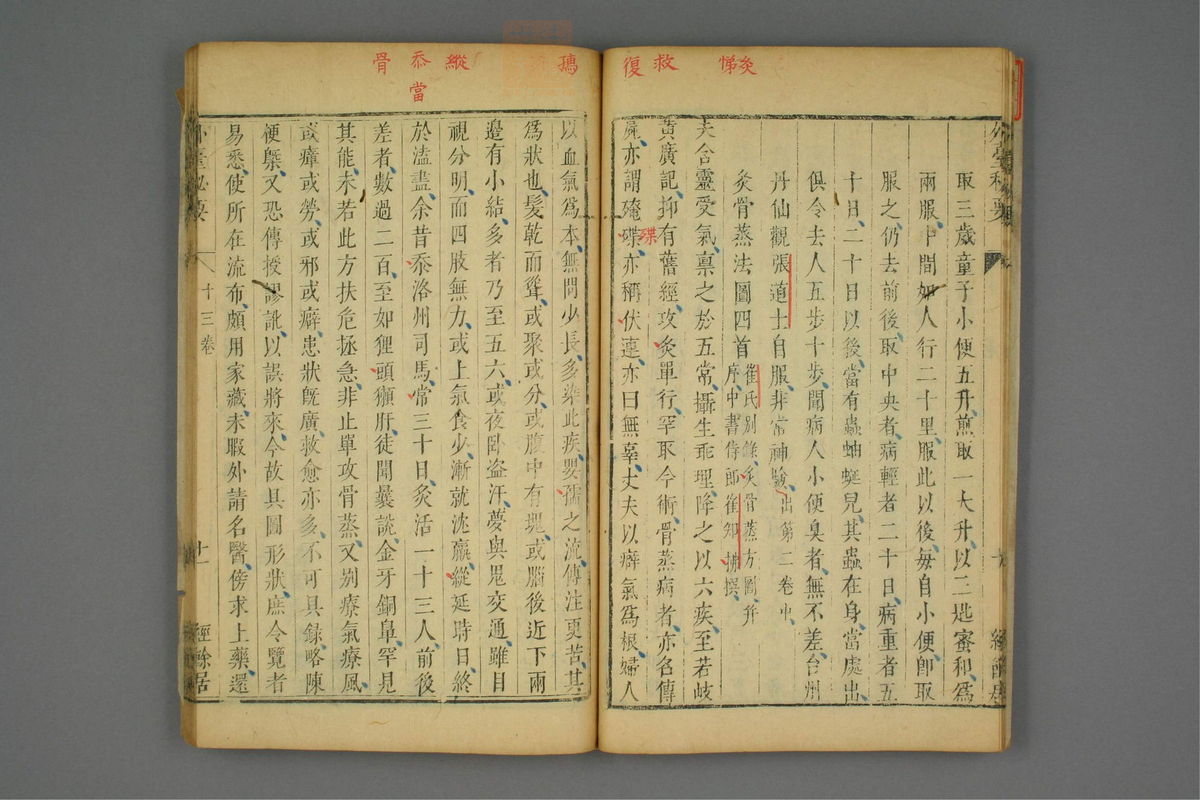 灸
悌
救
復
外臺秘要
取三歲童子小便五升煎取一大升以三匙蜜和爲
兩服中間如人行二十里服此以後每自小便卽取
服之仍去前後取中央者病輕者二十日病重者五
十日二十日以後當有蟲蚰蜒兒其蟲在身當處出
俱令去人五步十步聞病人小便臭者無不差台州
丹仙觀張道士自服非常神驗出第二卷中
灸骨蒸法圖四首崔氏別錄灸骨蒸方圖幷
序中書侍郎崔知悌撰
夫含靈受氣稟之於五常攝生乖理降之以六疾至若岐
黃廣記抑有舊經攻灸單行罕取今術骨蒸病者亦名傳
屍亦謂殗殜亦稱伏連亦曰無辜丈夫以癖氣爲根婦人
殜
縱
忝當
骨
以血氣爲本無問少長多染此疾嬰孺之流傳注更苦其
爲狀也髮乾而聳或聚或分或腹中有塊或腦後近下兩
邊有小結多者乃至五六或夜臥盗汗夢與鬼交通雖目
視分明而四肢無力或上氣食少漸就沈羸縱延時日終
於溘盡余昔忝洛州司馬常三十日灸活一十三人前後
差者數過二百至如狸頭獺肝徒聞曩說金牙銅鼻罕見
其能未若此方扶危拯急非止單攻骨蒸又別療氣療風
或瘴或勞或邪或癖患狀旣廣救愈亦多不可具録略陳
梗槩又恐傳授謬訛以誤將來今故具圖形狀庶令覽者
易悉使所在流布頗用家藏未暇外請名醫傍求上藥還
外臺秘要
十三卷
十一
經餘居